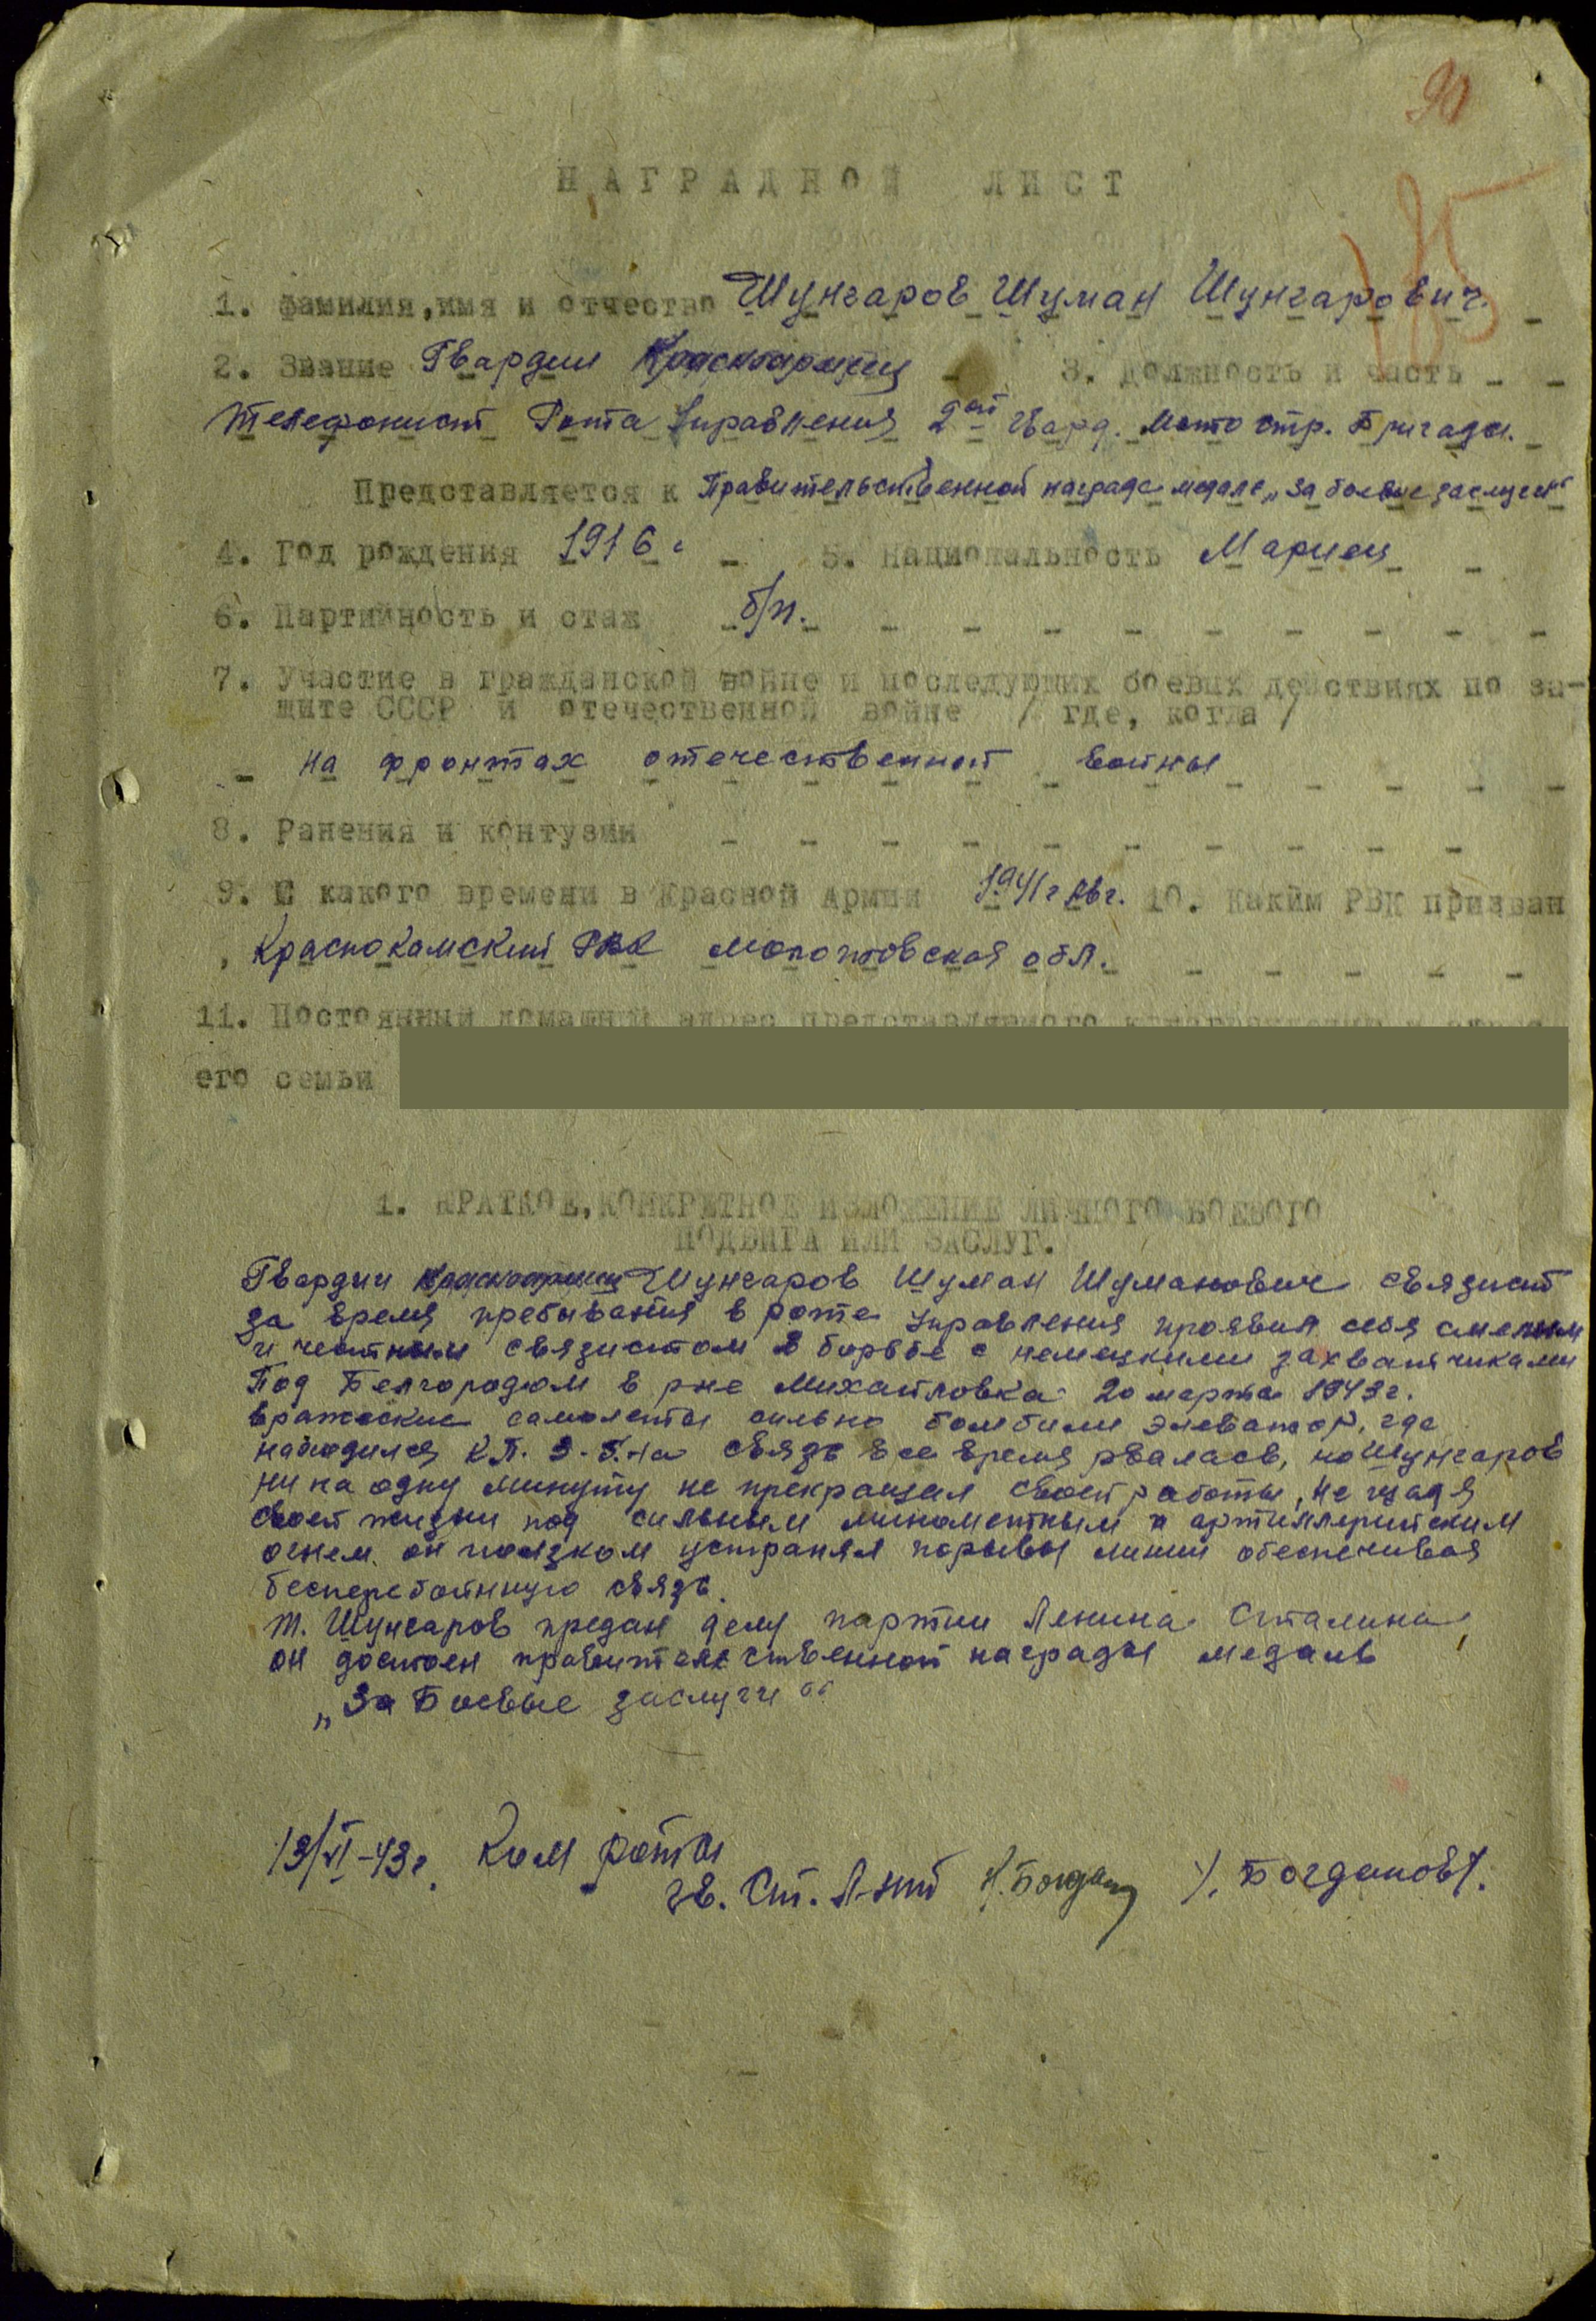 90
185
НАГРАДНОЙ ЛИСТ
1. Фамилия, имя и отчество Шунгаров Шуман Шунгарович.
2. Звание Гвардии Красноармеец 3. Должность и часть
Телефонист Рота Управления 2ой Гвард. Мото стр. Бригады.
Представляется к Правительственной награде медаль „За боевые заслуги“
4. Год рождения 1916 г 5. Национальность Мариец
6. Партийность и стаж б/п.
7. Участие в гражданской войне и последующих боевых действиях по за-
щите СССР и отечественной войне / где, когда /
на фронтах отечественной войны
8. Ранения и контузии
9. С какого времени в Красной Армии 1941 г Авг. 10. Каким РВК призван
Краснокамский РВК Молотовская обл.
11. Постоянный домашний адрес представляемого к награждению и адрес
его семьи
1. КРАТКОЕ, КОНКРЕТНОЕ ИЗЛОЖЕНИЕ ЛИЧНОГО БОЕВОГО
ПОДВИГА ИЛИ ЗАСЛУГ.
Гвардии Красноармеец Шунгаров Шуман Шуманович связист
за время пребывания в роте Управления проявил себя смелым
и честным связистом в борьбе с немецкими захватчиками
Под Белгородом в рне Михайловка 20 марта 1943 г.
вражеские самолеты сильно бомбили Элеватор, где
находился К.П. 3-Б-на связь все время рвалась, но Шунгаров
ни на одну минуту не прекращал своей работы, не щадя
своей жизни под сильным минометным и артиллерийским
огнем. он ползком устранял порывы линии обеспечивая
бесперебойную связь.
Т. Шунгаров предан делу партии Ленина Сталина,
он достоен правительственной награды медаль
„За Боевые заслуги“
13/VI-43 г. Ком роты
гв. Ст. Л-нт Н. Богданов /. Богданов/.